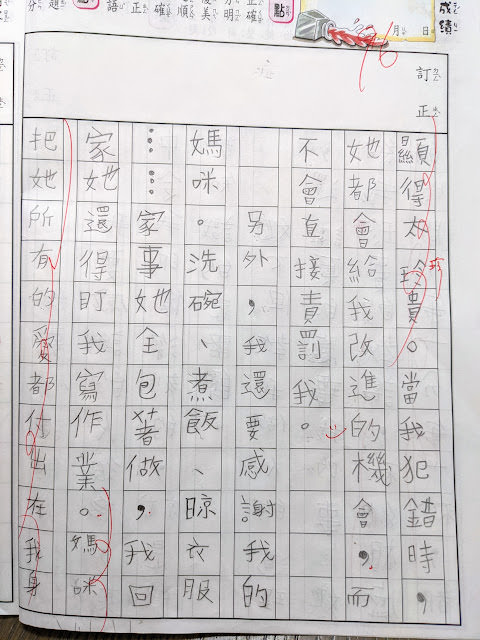 成績
月 日
訂正
顯得太珍貴。當我犯錯時，
她都會給我改進的機會，而
不會直接責罰我。
另外，我還要感謝我的
媽咪。洗碗、煮飯、晾衣服
⋯⋯家事她全包著做，我回
家她還得盯我寫作業。媽咪
把她所有的愛都付出在我身